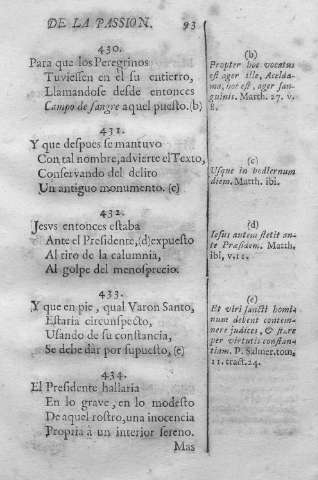 DE LA PASSION. 93
430.
Para que los Peregrinos
Tuviessen en el su entierro,
Llamandose desde entonces
Campo de sangre aquel puesto. (b)
431.
Y que despues se mantuvo
Con tal nombre, advierte el Texto,
Conservando del delito
Un antiguo monumento. (c)
432.
Jesvs entonces estaba
Ante el Presidente, (d) expuesto
Al tiro de la calumnia,
Al golpe del menosprecio.
433.
Y que en pie, qual Varon Santo,
Estaria circunspecto,
Usando de su constancia,
Se debe dar por supuesto, (e)
434.
El Presidente hallaria
En lo grave, en lo modesto
De aquel rostro, una inocencia
Propria à un interior sereno.
Mas
(b)
Propter hoc vocatus
est ager ille, Aceldama,
hoc est, ager sanguinis.
Matth. 27. v.
8.
(c)
Usque in hodiernum
diem. Matth. ibi.
(d)
Iesus autem stetit ante
Præsidem. Matth.
ibi, v. 11.
(e)
Et viri sancti hominum
debent contemnere
judices, & stare
per virtutis constantiam.
P. Salmer. tom.
11. tract. 24.